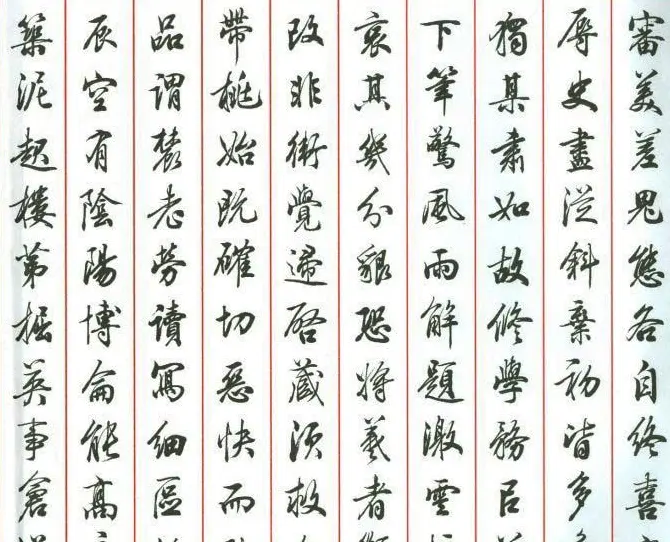 審美差鬼態各自終喜
辱史盡從斜棄初皆多
獨某肅如故修學務臣
下筆驚風雨解題激雲
哀其幾分貌恐將羲者
改非術覺還啓藏須救
帶桃始既確切惡快而
品謂蔡老勞讀寫細區
辰空有陰陽博侖能高
築泥起樓第掘英事倉